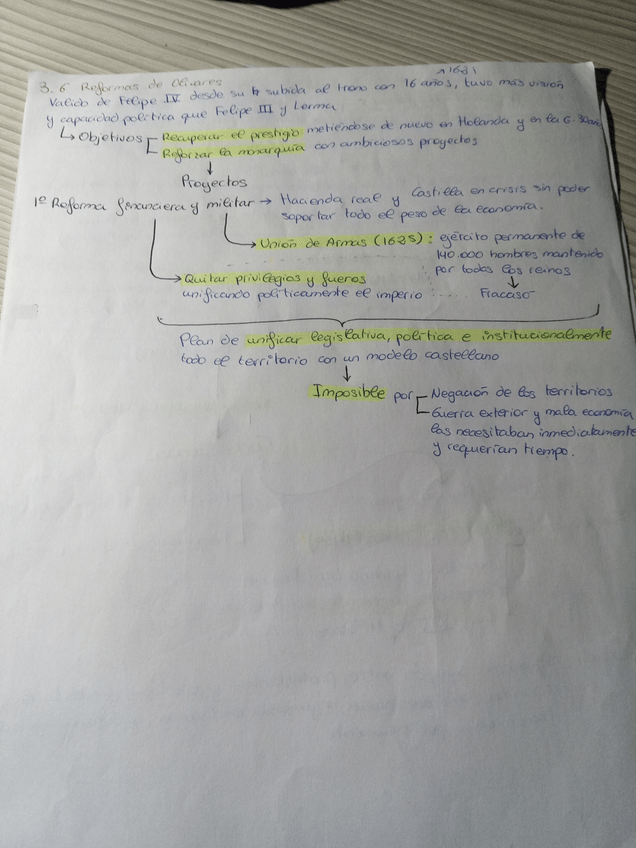 →1621
3.6 Reformas de Olivares
Valido de Felipe IV desde su subida al trono con 16 años, tuvo más visión
y capacidad política que Felipe III y Lerma
↳ Objetivos Recuperar el prestigio metiéndose de nuevo en Holanda y en la G. 30 años
Reforzar la monarquía con ambiciosos proyectos
↓
Proyectos
1º Reforma financiera y militar → Hacienda real y Castilla en crisis sin poder
soportar todo el peso de la economía.
→ Unión de Armas (1625): ejército permanente de
140.000 hombres mantenido
por todos los reinos
→ Quitar privilegios y fueros ↓
unificando políticamente el imperio ..... Fracaso
Plan de unificar legislativa, política e institucionalmente
todo el territorio con un modelo castellano
↓
Imposible por Negación de los territorios
Guerra exterior y mala economía
las necesitaban inmediatamente
y requerían tiempo.